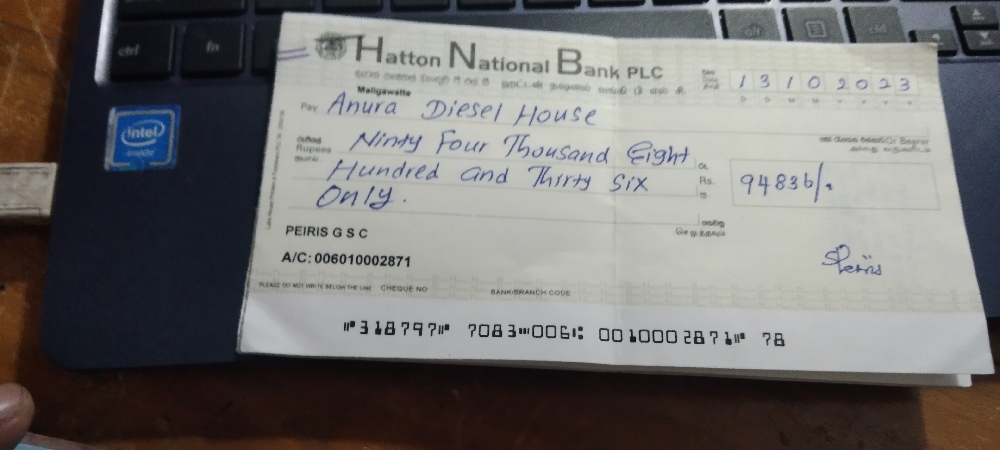 ctrl
fn
alt
ctrl
intel
inside
Hatton National Bank PLC
Maligawatte
13102023
D D M M Y Y Y Y
Pay Anura Diesel House
Or Bearer
Rupees Ninty Four Thousand Eight
Hundred and Thirty Six
Only.
Rs. 94836/.
PEIRIS G S C
A/C: 006010002871
PLEASE DO NOT WRITE BELOW THE LINE CHEQUE NO BANK/BRANCH CODE
⑈318797⑈ 7083⑉006⑆ 0010002871⑈ 78